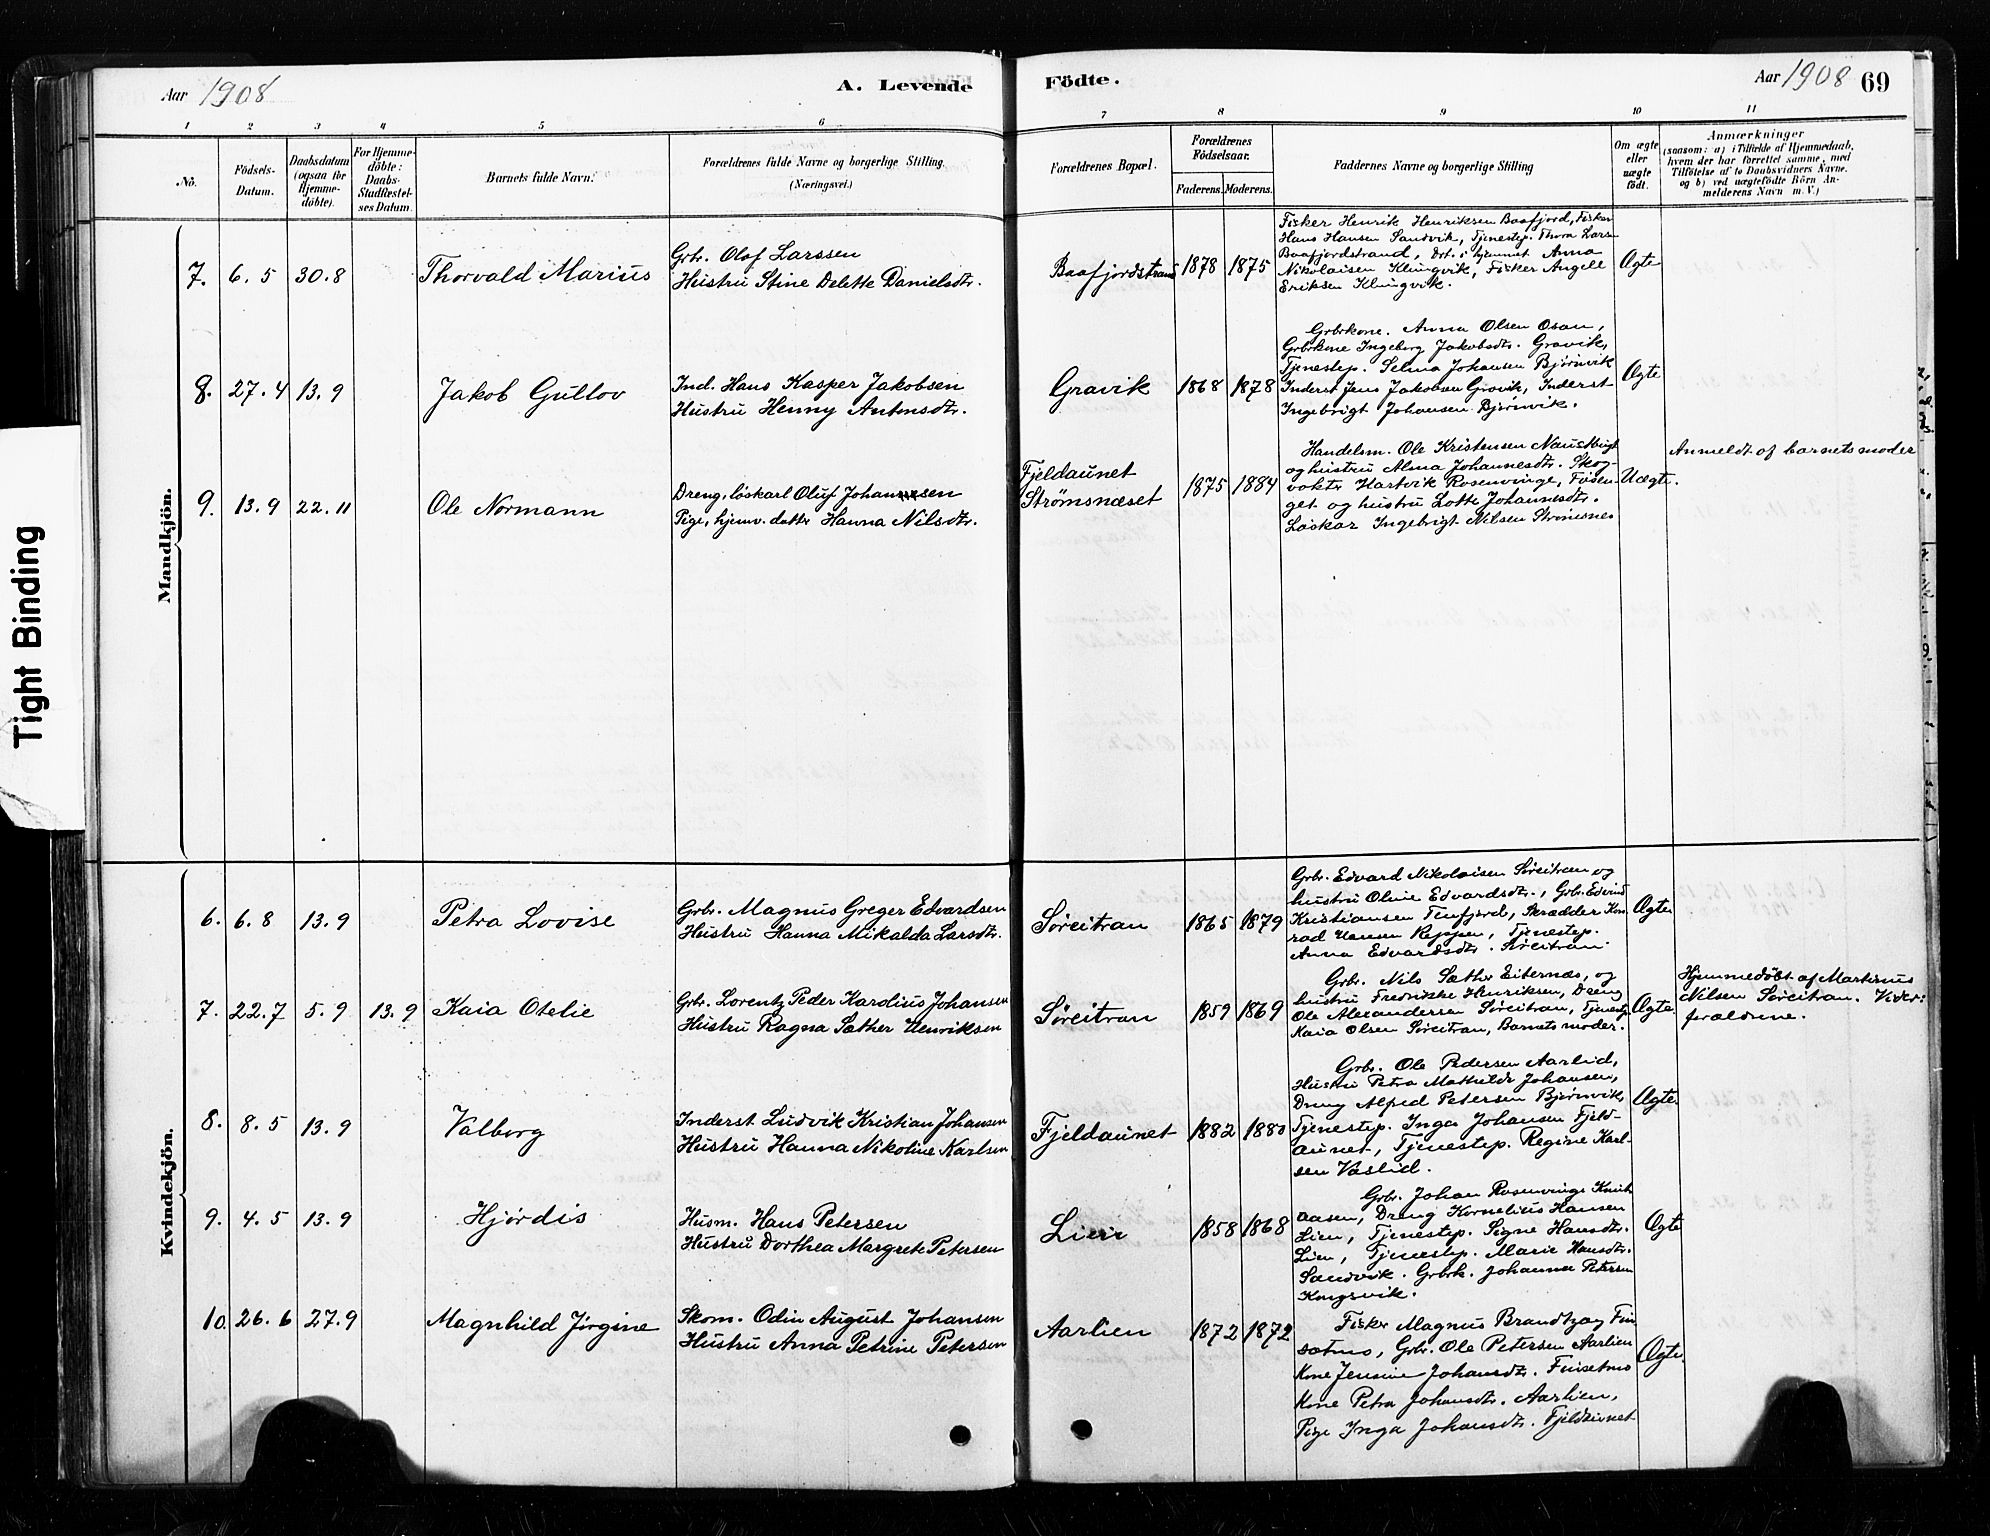 Aar 1908
A. Levende
Födte.
Aar 1908 69
1 2 3 4 5 6 7 8 9 10 11
No.
Födsels-
Datum.
Daabsdatum
(ogsaa for
Hjemme-
döbte).
For Hjemme-
döbte:
Daabs-
Stadfæstel-
ses Datum.
Barnets fulde Navn.
Forældrenes fulde Navne og borgerlige Stilling.
(Næringsvei.)
Forældrenes Bopæl.
Forældrenes
Födselsaar.
Faderens. Moderens.
Faddernes Navne og borgerlige Stilling
Om ægte
eller
uægte
födt.
Anmærkninger
(saasom: a) i Tilfælde af Hjemmedaab,
hvem der har forrettet samme, med
Tilföielse af to Daabsvidners Navne.
og b) ved uægtefödte Börn An-
melderens Navn m. V.)
Tight Binding
Mandkjön.
7. 6. 5 30.8 Thorvald Marius
Grbr. Olaf Larssen
Hustru Stine Delette Danielsdtr.
Baafjordstrand 1878 1875
Fisker Henrik Henriksen Baafjord, Fisker
Hans Hansen Sandvik, Tjenestep. Thora Lars
Baafjordstrand, Anna
Nikolaisen Klungvik, Fisker Angell
Eriksen Klungvik.
Ægte
8. 27.4 13.9 Jakob Gullov
Ind. Hans Kasper Jakobsen
Hustru Henny Antonsdtr.
Gravik 1868 1878
Grbrkone. Anna Olsen Osan,
Grbrkone Ingeborg Jakobsdtr. Gravik,
Tjenestep. Selma Johansen Bjørnvik
Inderst Jens Jakobsen Gravik, Inderst
Ingebrigt Johansen Bjørnvik.
Ægte
9. 13.9 22.11 Ole Normann
Dreng, løskarl Oluf Johansen
Pige, hjemv. datter Hanna Nilsdtr.
Fjeldaunet
Strømsnæset
1875 1884
Handelsm. Ole Kristensen Naustbugt
og hustru Alma Johannesdtr. Skog-
vokter Hartvik Rosenvinge, Fjelden-
get og hustru Lotte Johannesdtr.
Løskar Ingebrigt Nilsen Strømsnes
Uægte.
Anmeldt af barnets moder
Kvindekjön.
6. 6.8 13.9 Petra Lovise
Grbr. Magnus Greger Edvardsen
Hustru Hanna Mikalda Larsdtr.
Søreitran 1865 1879
Grbr. Edvard Nikolaisen Søreitran og
hustru Oline Edvardsdtr., Grbr. Edvind
Kristiansen Tenfjord, Skrædder Kon-
rad Hansen Reppen, Tjenestep.
Anna Edvardsdtr. Søreitran.
Ægte
7. 22.7 5.9 13.9 Kaia Otelie
Grbr. Lorentz Peder Karolius Johansen
Hustru Ragna Sæther Henriksen
Søreitran 1859 1869
Grbr. Nils Sæther Eiternæs, og
hustru Fredrikke Henriksen, Dreng
Ole Alexandersen Søreitran, Tjenestp.
Kaia Olsen Søreitran, Barnets moder.
Ægte
Hjemmedøbt af Martinus
Nilsen Søreitran. Vidner:
forældrene.
8. 8.5 13.9 Valborg
Inderst Ludvik Kristian Johansen
Hustru Hanna Nikoline Karlsen
Fjeldaunet 1882 1880
Grbr. Ole Pedersen Aarlid,
Hustru Petra Mathilde Johansen,
Dreng Alfred Petersen Bjørnvik,
Tjenestep. Inga Johansen Fjeld-
aunet, Tjenestep. Regine Karl-
sen Vaslid.
Ægte.
9. 4.5 13.9 Hjørdis
Husm. Hans Petersen
Hustru Dorthea Margrete Petersen
Lien 1858 1868
Grbr. Johan Rosenvinge
aasen, Dreng Kornelius Hansen
Lien, Tjenestep. Signe Hansdtr.
Lien, Tjenestep. Marie Hansdtr.
Sandvik. Grbrk. Johanna Petersen
Kongsvik.
Ægte
10. 26.6 27.9 Magnhild Jørgine
Skom. Odin August Johansen
Hustru Anna Petrine Petersen
Aarlien 1872 1872
Fisker Magnus Brandtzog Fin
sætmo, Grbr. Ole Petersen Aarlien
Kone Jensine Johansdtr. Finsetmo
Kone Petra Johansdtr. Aarlien,
Pige Inga Johansdtr. Fjeldaunet
Ægte.